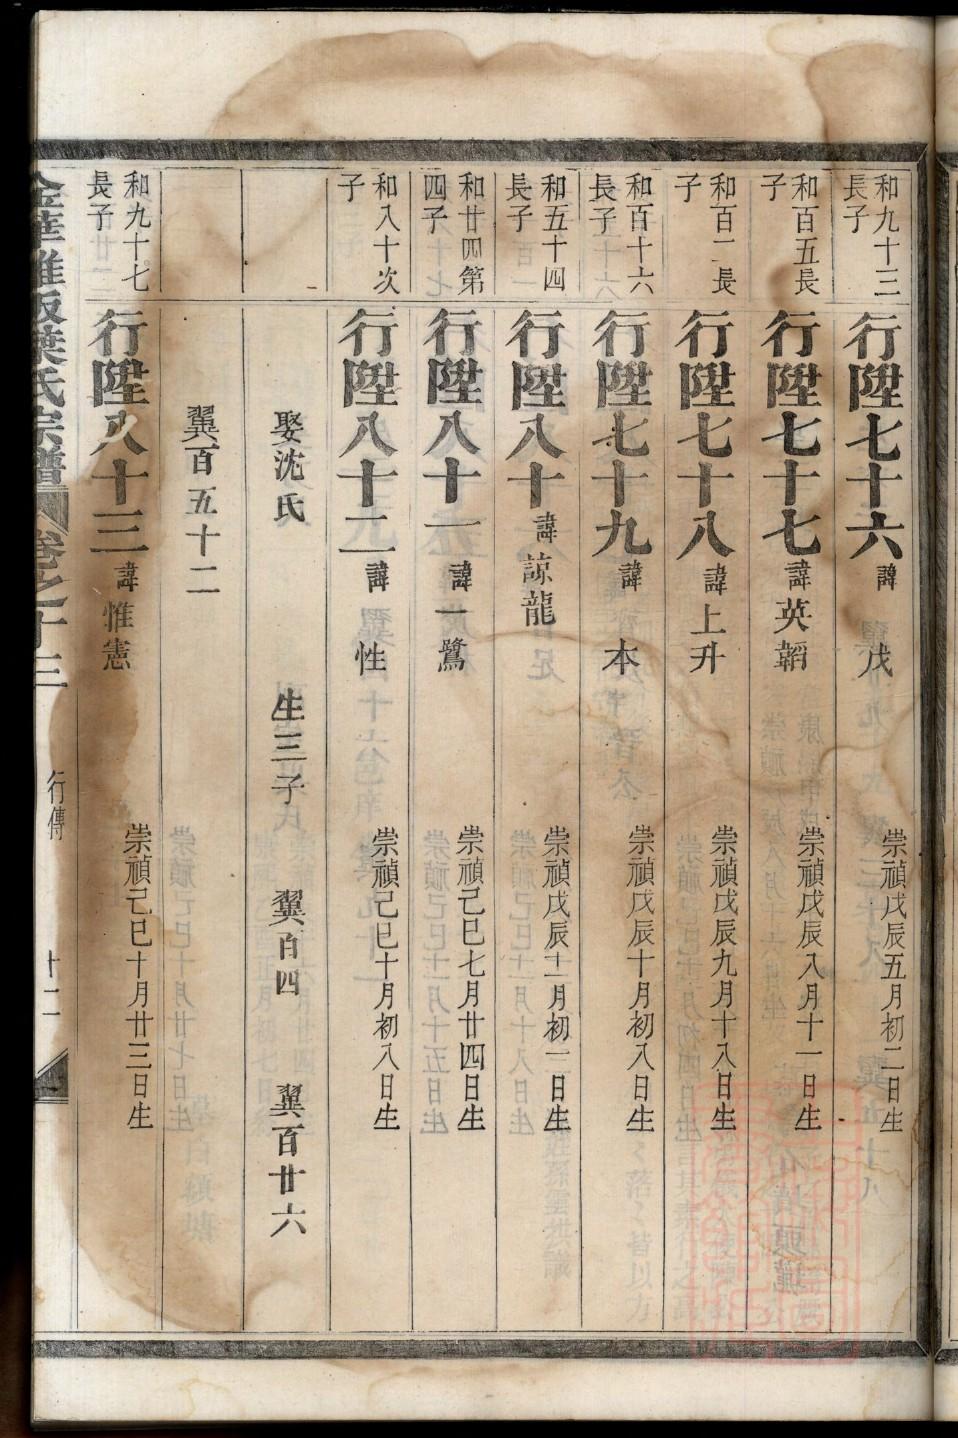 和九十三
長子
行陞七十六 諱 戊
崇禎戊辰五月初二日生
和百五長
子
行陞七十七 諱英韜
崇禎戊辰八月十一日生
和百一長
子
行陞七十八 諱上升
崇禎戊辰九月十八日生
和百十六
長子
行陞七十九 諱 本
崇禎戊辰十月初八日生
和五十四
長子
行陞八十 諱諒龍
崇禎戊辰十二月初二日生
和廿四第
四子
行陞八十一 諱一鷺
崇禎己巳七月廿四日生
和八十次
子
行陞八十二 諱 性
崇禎己巳十月初八日生
娶沈氏 生三子 翼百四 翼百廿六
翼百五十二
和九十七
長子
行陞八十三 諱惟憲
崇禎己巳十月廿三日生
葉氏宗譜 卷之十三 行傳 十二